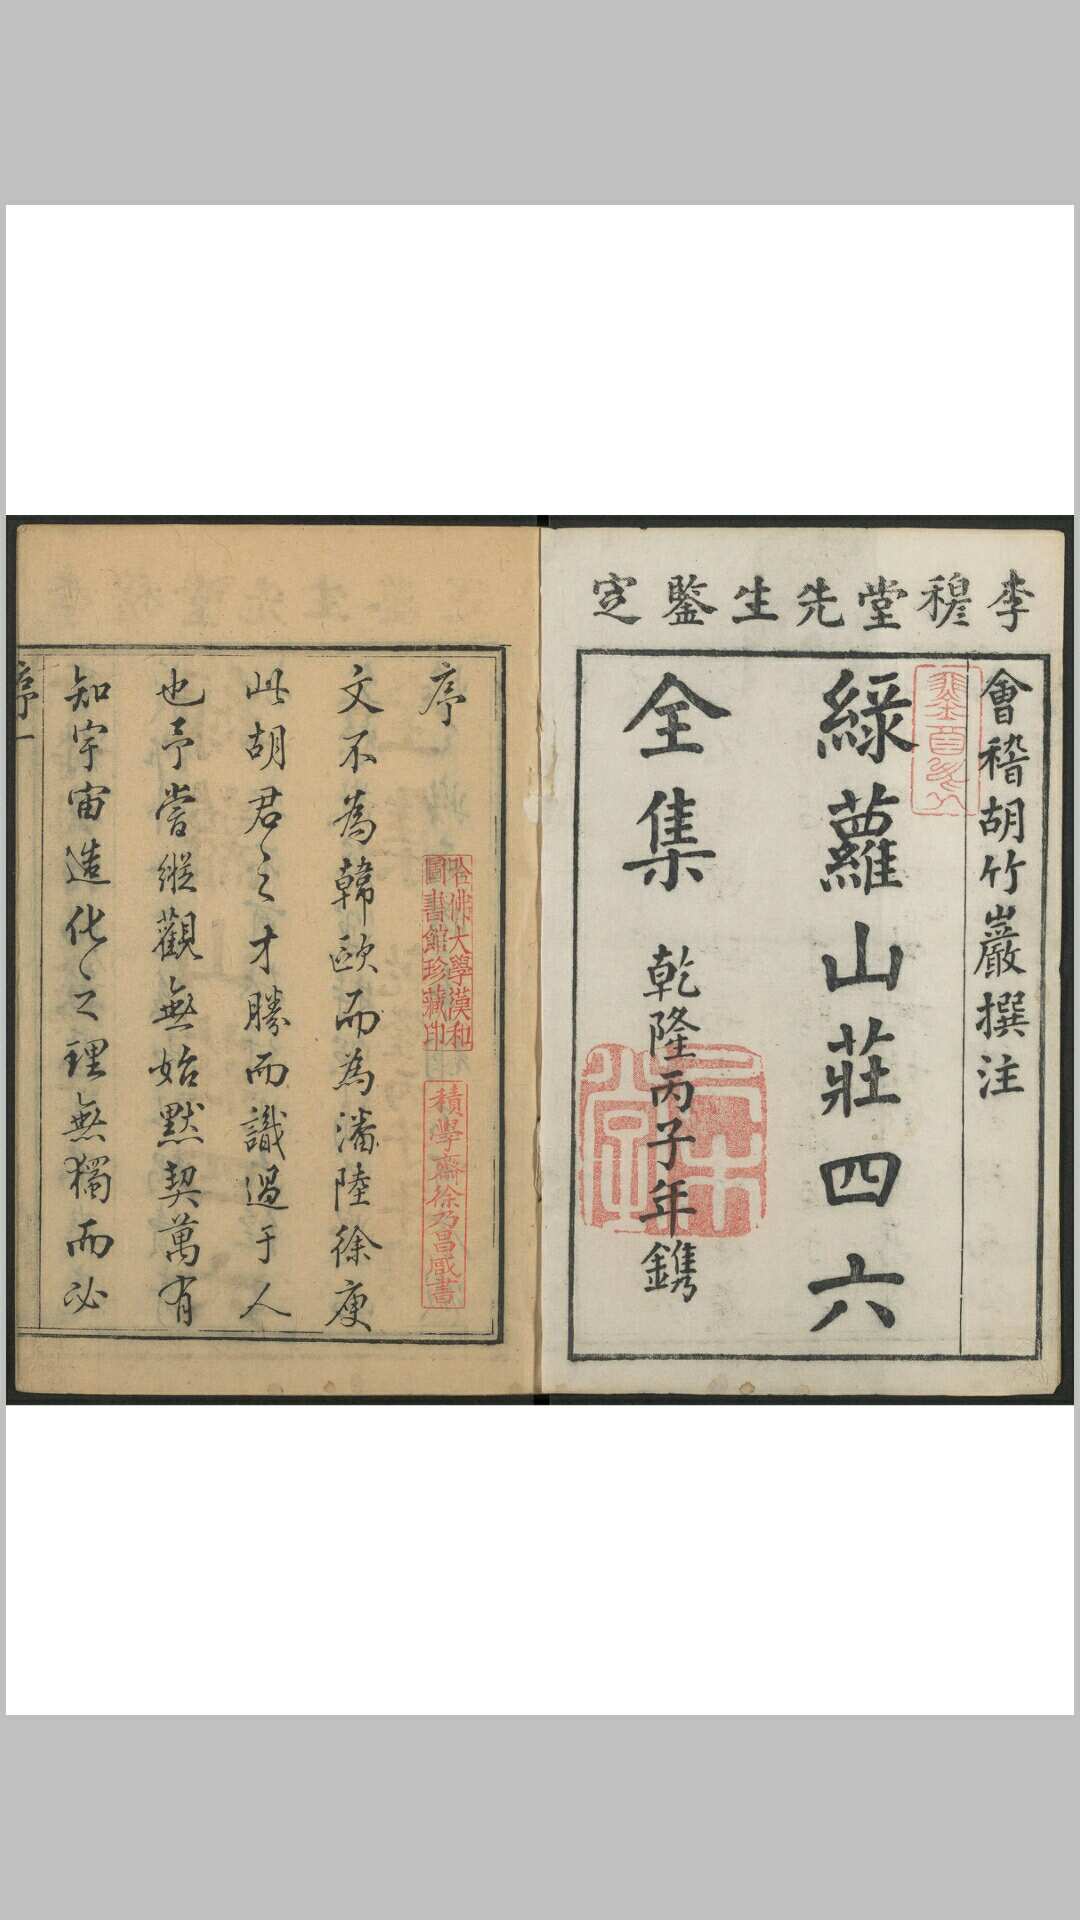 李穆堂先生鑒定
會稽胡竹巖撰注
綠蘿山莊四六
全集
乾隆丙子年鐫
序
文不為韓歐而為潘陸徐庾
此胡君之才勝而識過于人
也予嘗縱觀無始默契萬有
知宇宙造化之理無獨而必
序一
哈佛大學漢和
圖書館珍藏印
積學齋徐乃昌藏書